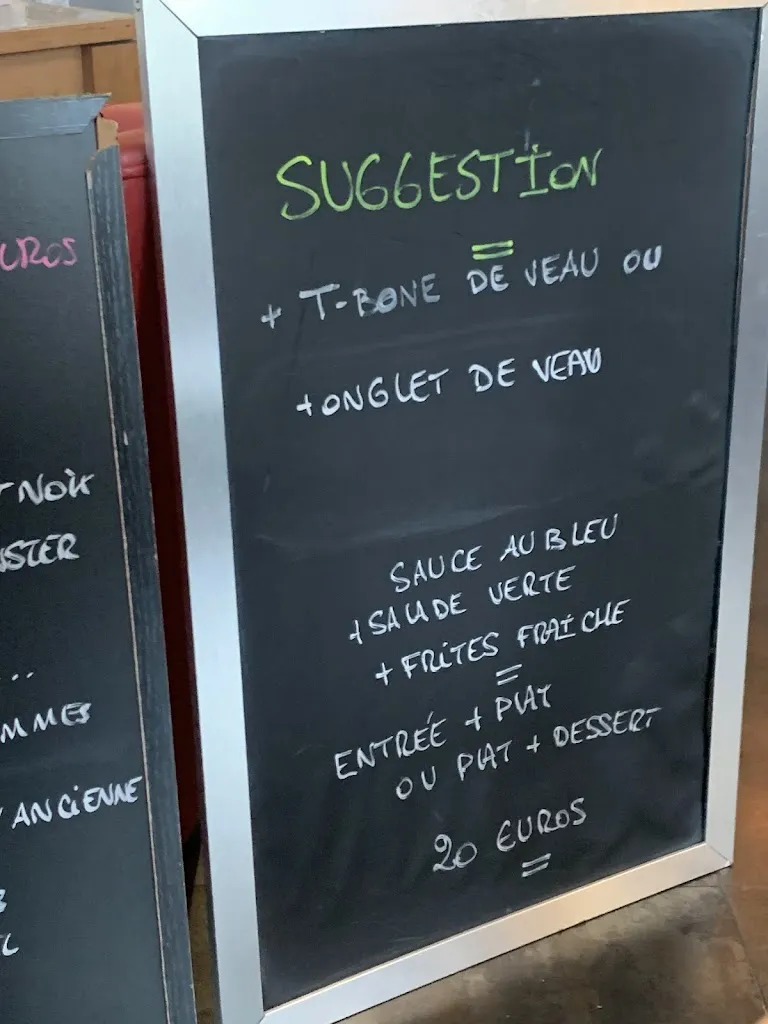 SUGGESTION
=
+ T-BONE DE VEAU OU
+ ONGLET DE VEAU
SAUCE AU BLEU
+ SALADE VERTE
+ FRITES FRAÎCHE
=
ENTRÉE + PLAT
OU PLAT + DESSERT
20 EUROS
=
UROS
NOIR
NSTER
...
MMES
ANCIENNE